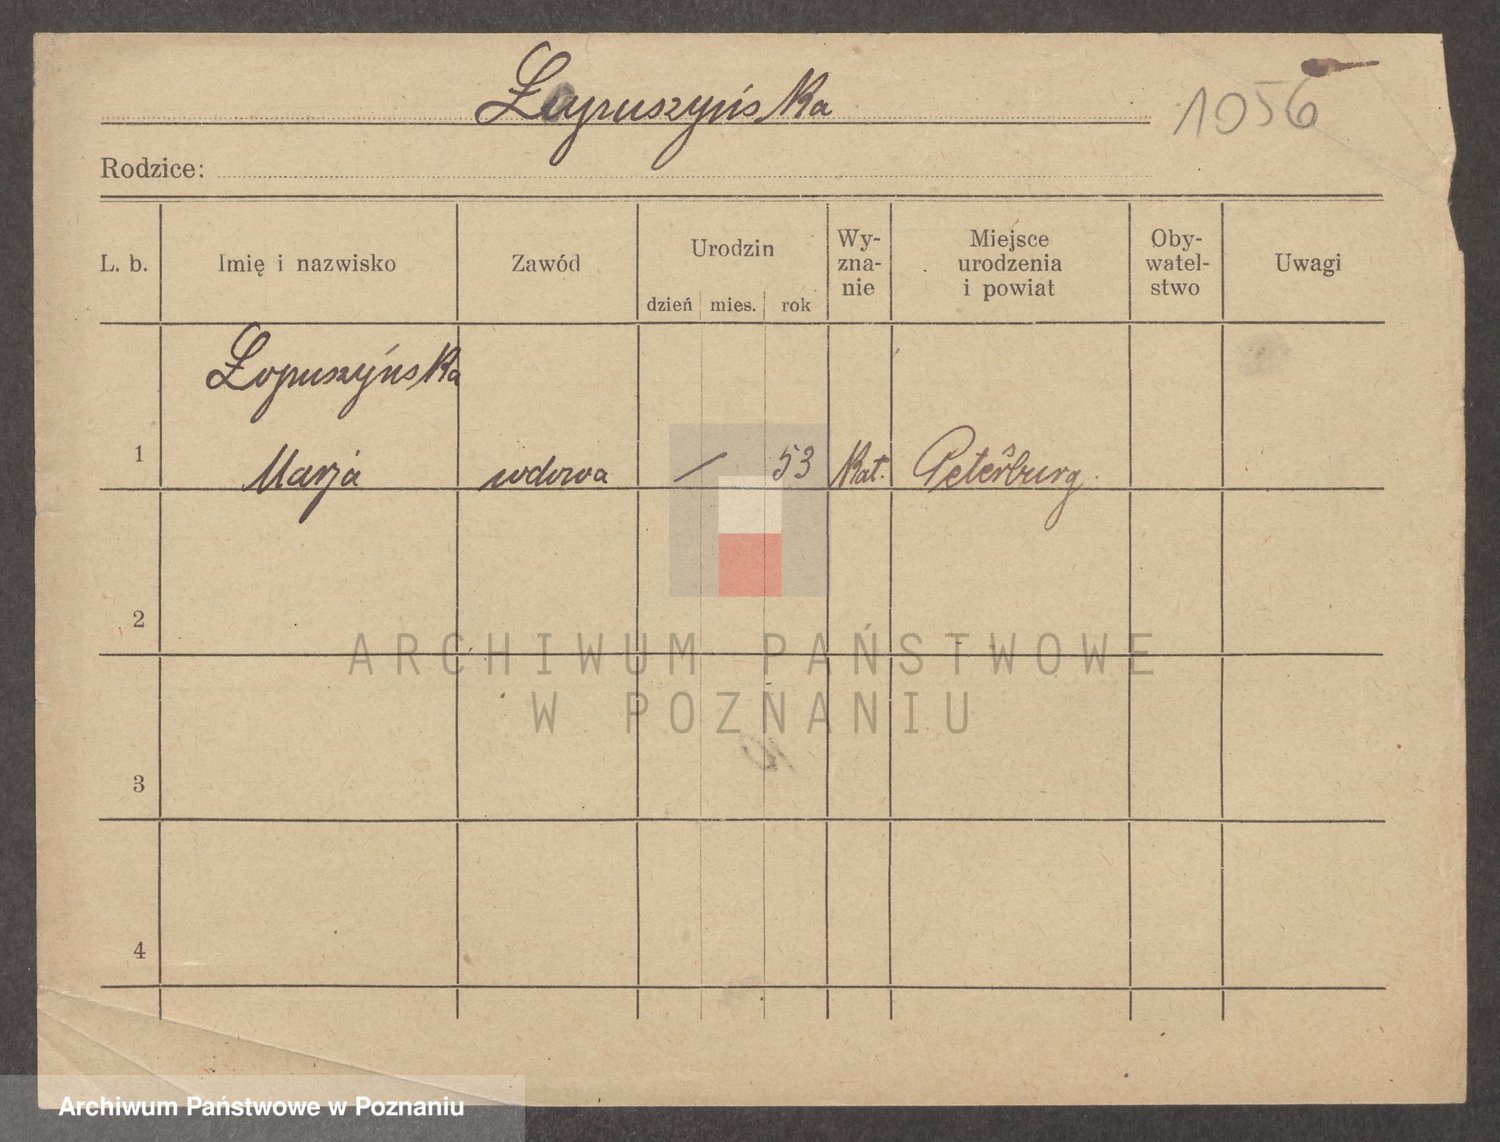 Łopuszyńska
1056
Rodzice:
L. b. Imię i nazwisko Zawód Urodzin dzień mies. rok Wy-zna-nie Miejsce urodzenia i powiat Oby-watel-stwo Uwagi
Łopuszyńska
1 Marja wdowa / 53 kat. Petersburg.
2
3
4
ARCHIWUM PAŃSTWOWE
W POZNANIU
Archiwum Państwowe w Poznaniu